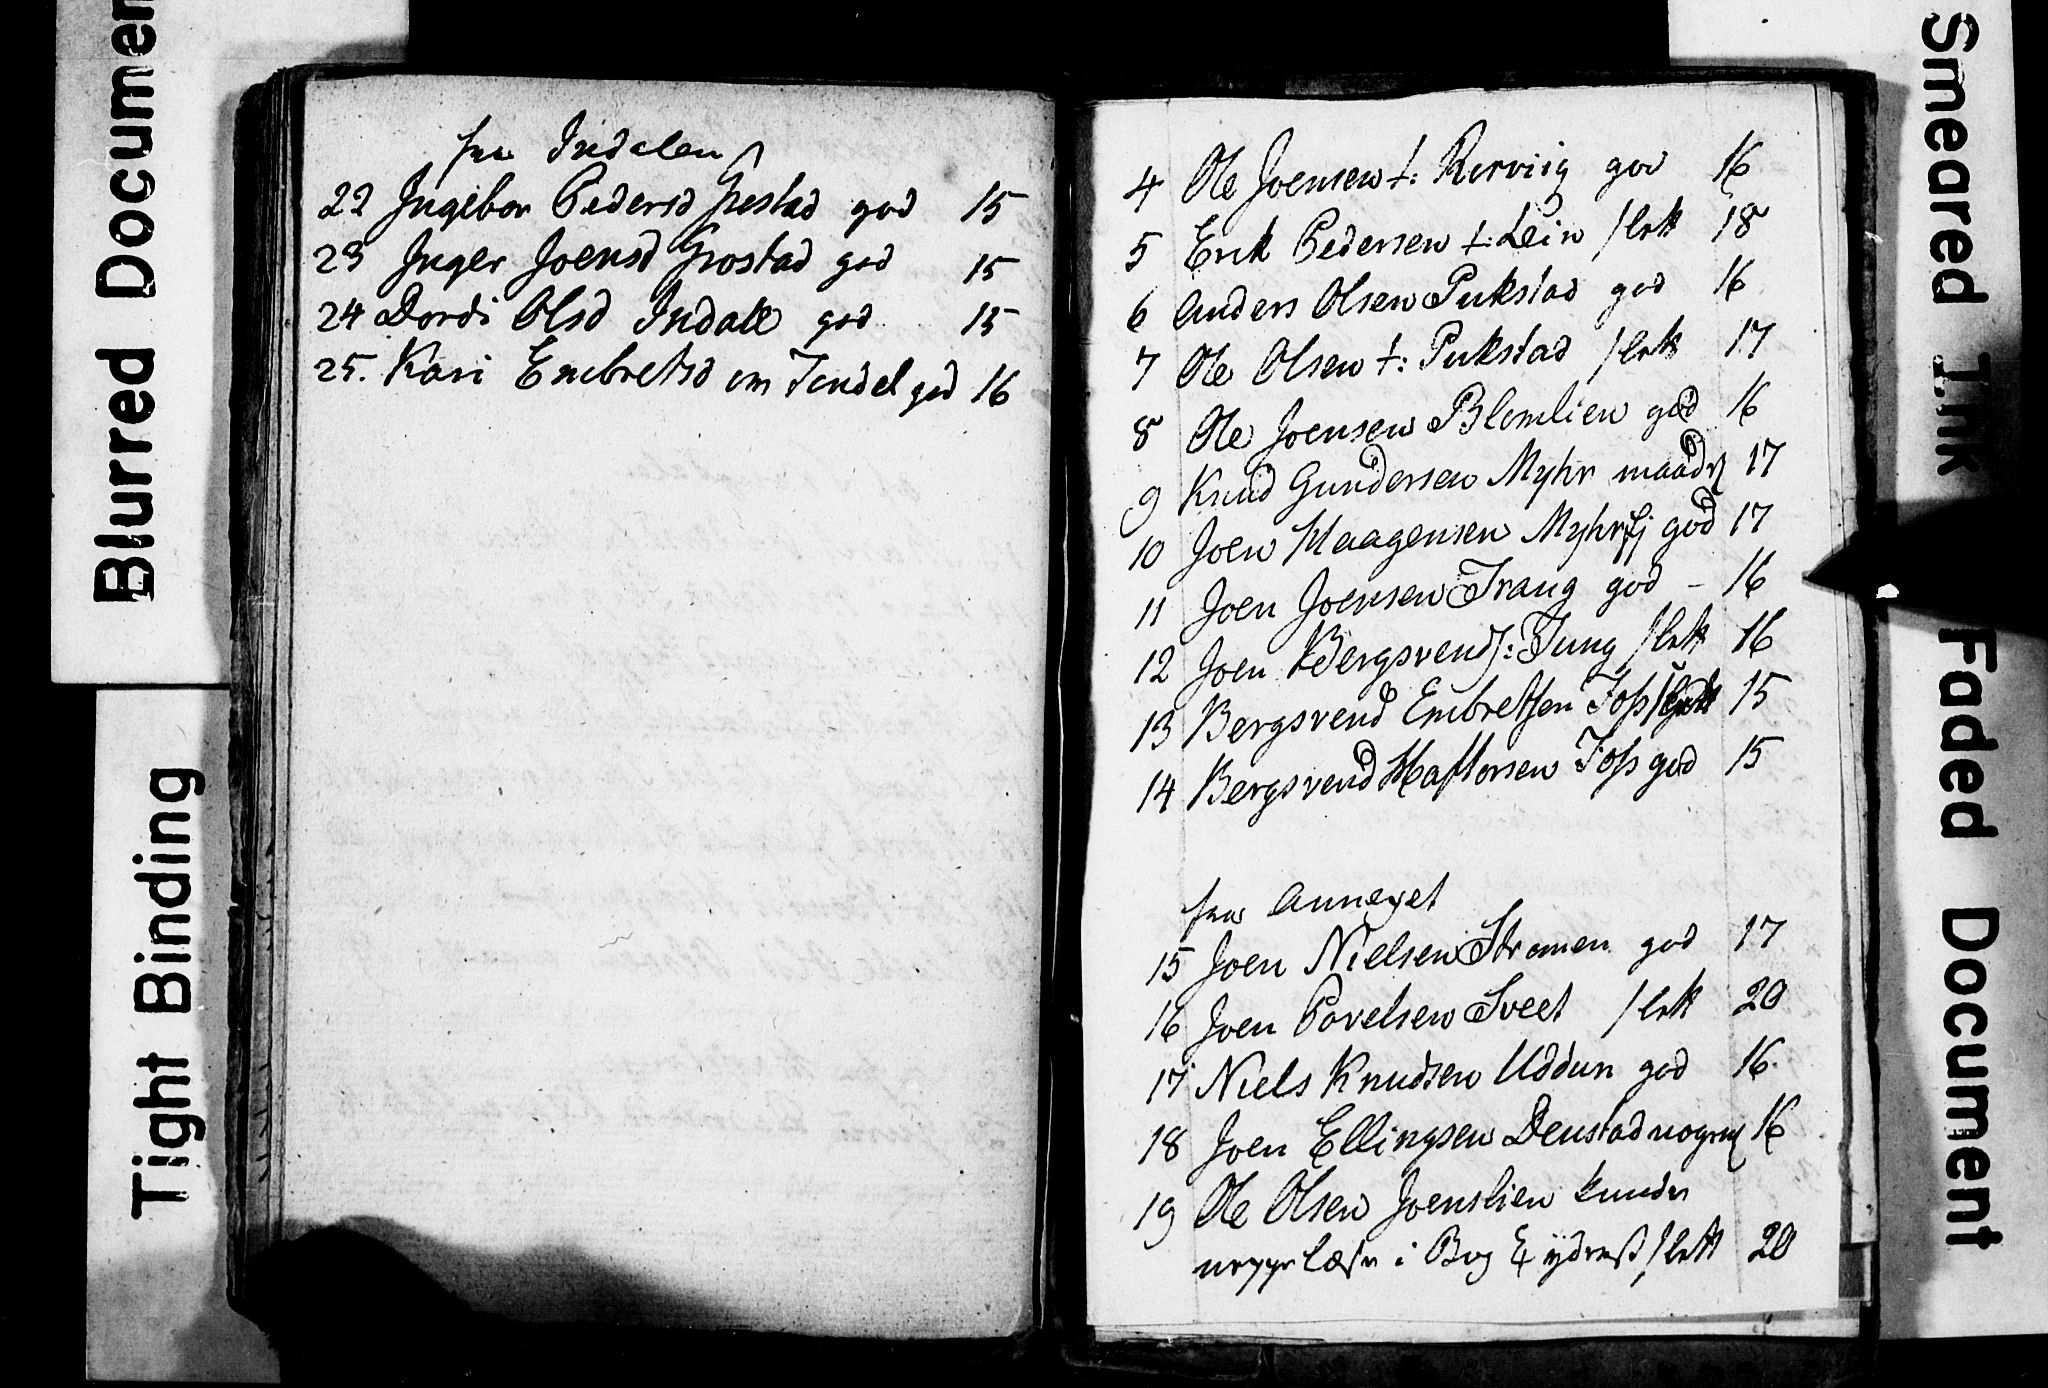 Blurred Document
Tight Binding
fra Indalen
22 Ingebor Pedersd Grostad god 15
23 Inger Joensd Grostad god 15
24 Dordi Olsd Indall god 15
25. Kari Embretsd om Indal god 16
4 Ole Joensen t: Rorviig god 16
5 Erik Pedersen t: Lein slet 18
6 Anders Olsen Pukstad god 16
7 Ole Olsen t: Pukstad slet 17
8 Ole Joensen Blomlien god 16
9 Knud Gundersen Myhr maadl 17
10 Joen Haagensen god 17
11 Joen Joensen Trang god - 16
12 Joen Bergsvends: Tung slet 16
13 Bergsvend Embretsen Foss 15
14 Bergsvend Haftorsen Foss god 15
fra Annexet
15 Joen Nielsen Stromen god 17
16 Joen Povelsen Sveet slet 20
17 Niels Knudsen Uddun god 16
18 Joen Ellingsen Deustad 16
19 Ole Olsen Joenslien
læse i Bog & yderst slett 20
Smeared Ink
Faded Document